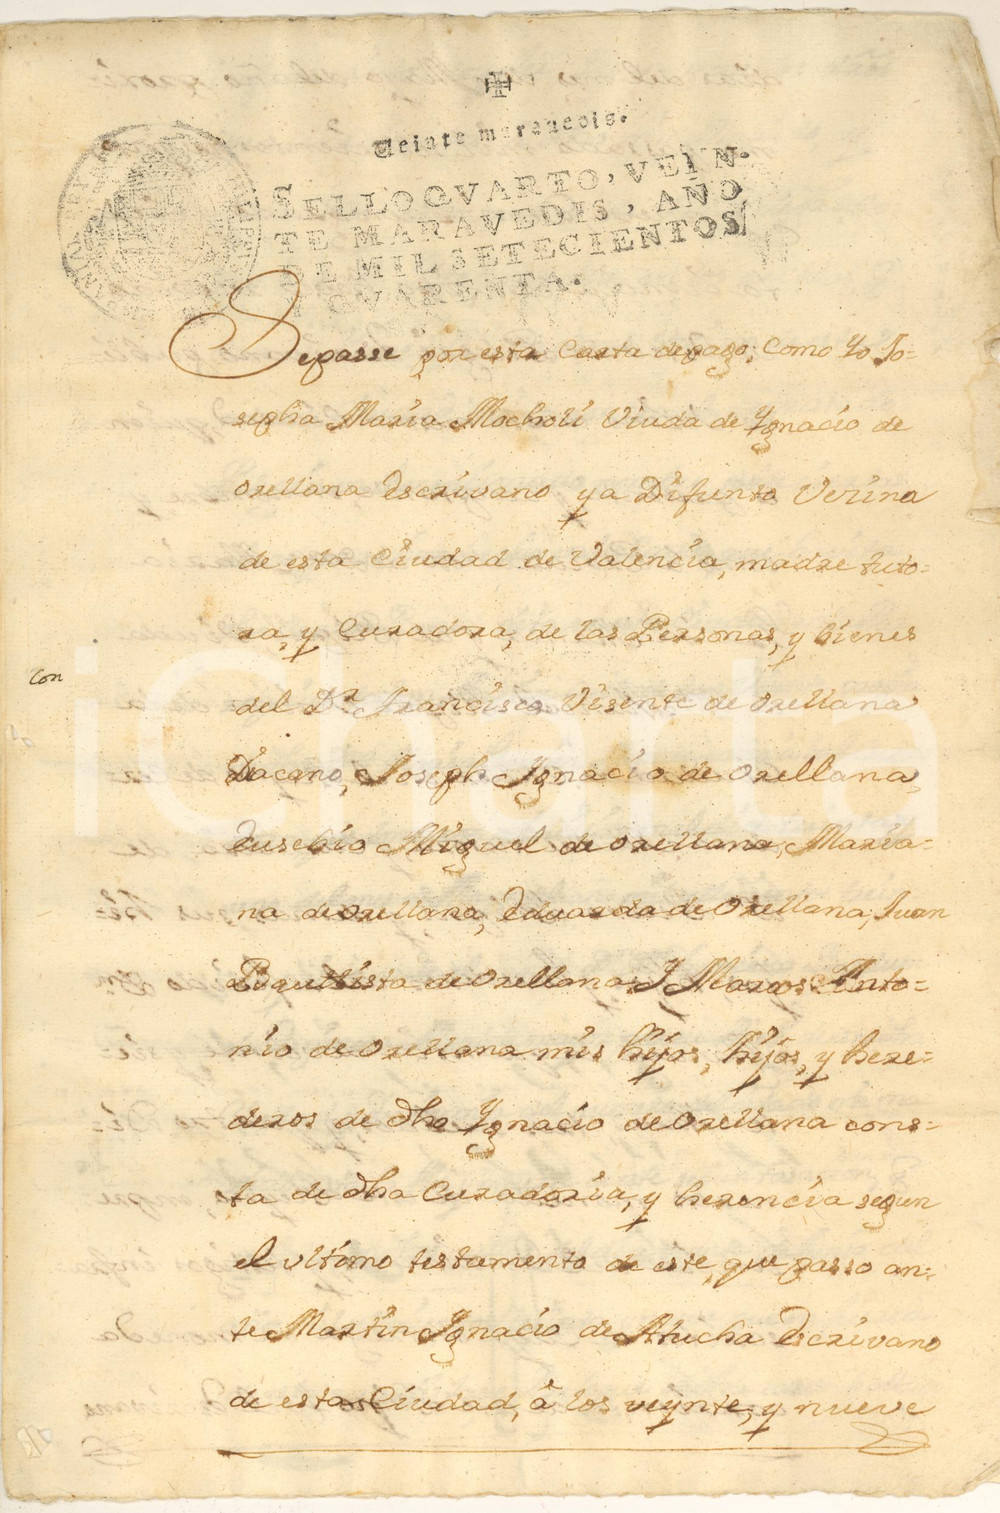 Veinte maravedis.
SELLO QVARTO, VEIN-
TE MARAVEDIS, AÑO
DE MIL SETECIENTOS
Y QVARENTA.
Sepasse por esta Carta de pago, Como Yo Jo=
sepha Maria Mocholi Viuda de Ygnacio de
Orellana Escrivano ya Difunto Vezina
de esta Ciudad de Valencia, madre tuto=
ra, y Curadora, de las Personas, y bienes
Con
del Dr. Francisco Visente de Orellana
Diacano, Joseph Ygnacio de Orellana,
Eusebio Miguel de Orellana, Maria=
na de Orellana, Eduarda de Orellana, Juan
Bauttista de Orellana, Y Marcos Anto=
nio de Orellana mis hijos, hijos, y here=
deros de dho Ygnacio de Orellana cons=
ta de dha Curadoria, y herencia segun
el vltimo testamento de este, que passo an=
te Martin Ygnacio de Atucha Escrivano
de esta Ciudad, â los veynte, y nueve
iCharta